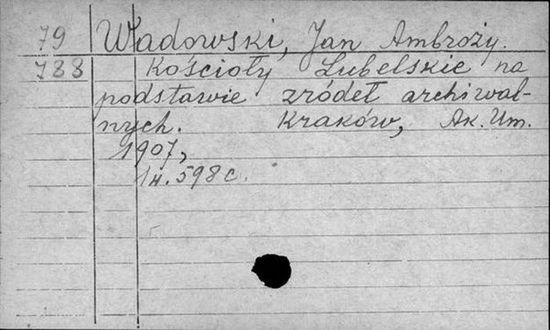 79 Wadowski, Jan Ambroży.
788 Kościoły Lubelskie na
podstawie źródeł archiwal-
nych. Kraków, Ak. Um.
1907,
14. 598 c.